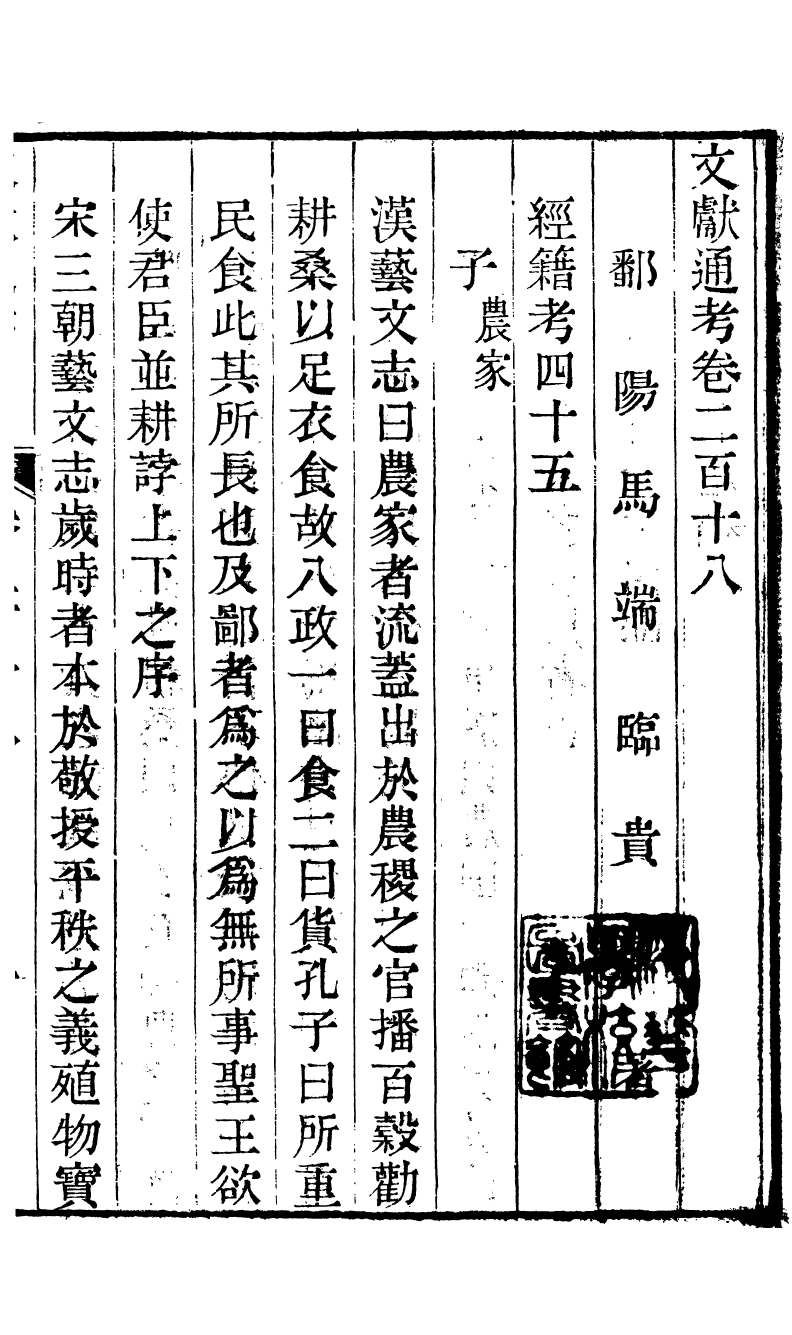 文獻通考卷二百十八
鄱陽馬端臨貴
經籍考四十五
子農家
漢藝文志曰農家者流蓋出於農稷之官播百穀勸
耕桑以足衣食故八政一曰食二曰貨孔子曰所重
民食此其所長也及鄙者爲之以爲無所事聖王欲
使君臣並耕誖上下之序
宋三朝藝文志歲時者本於敬授平秩之義殖物寶